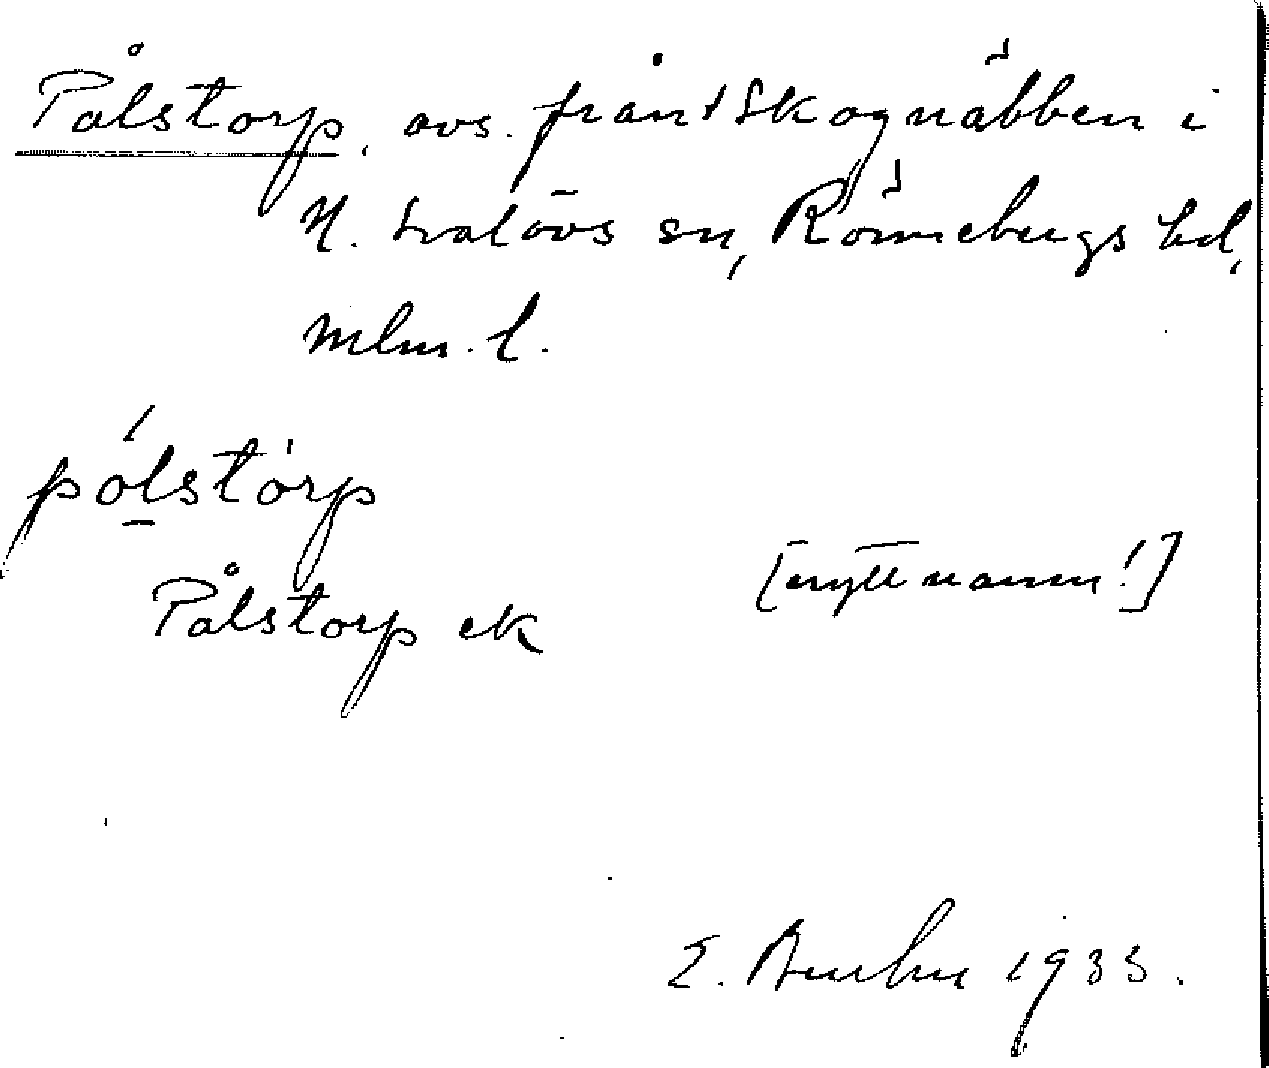 Pålstorp, avs. från Skognäbben i
N. Svalövs sn, Rönnebergs hd,
Mlm. l.
pålstórp
Pålstorp ek [nytt namn!]
1933.